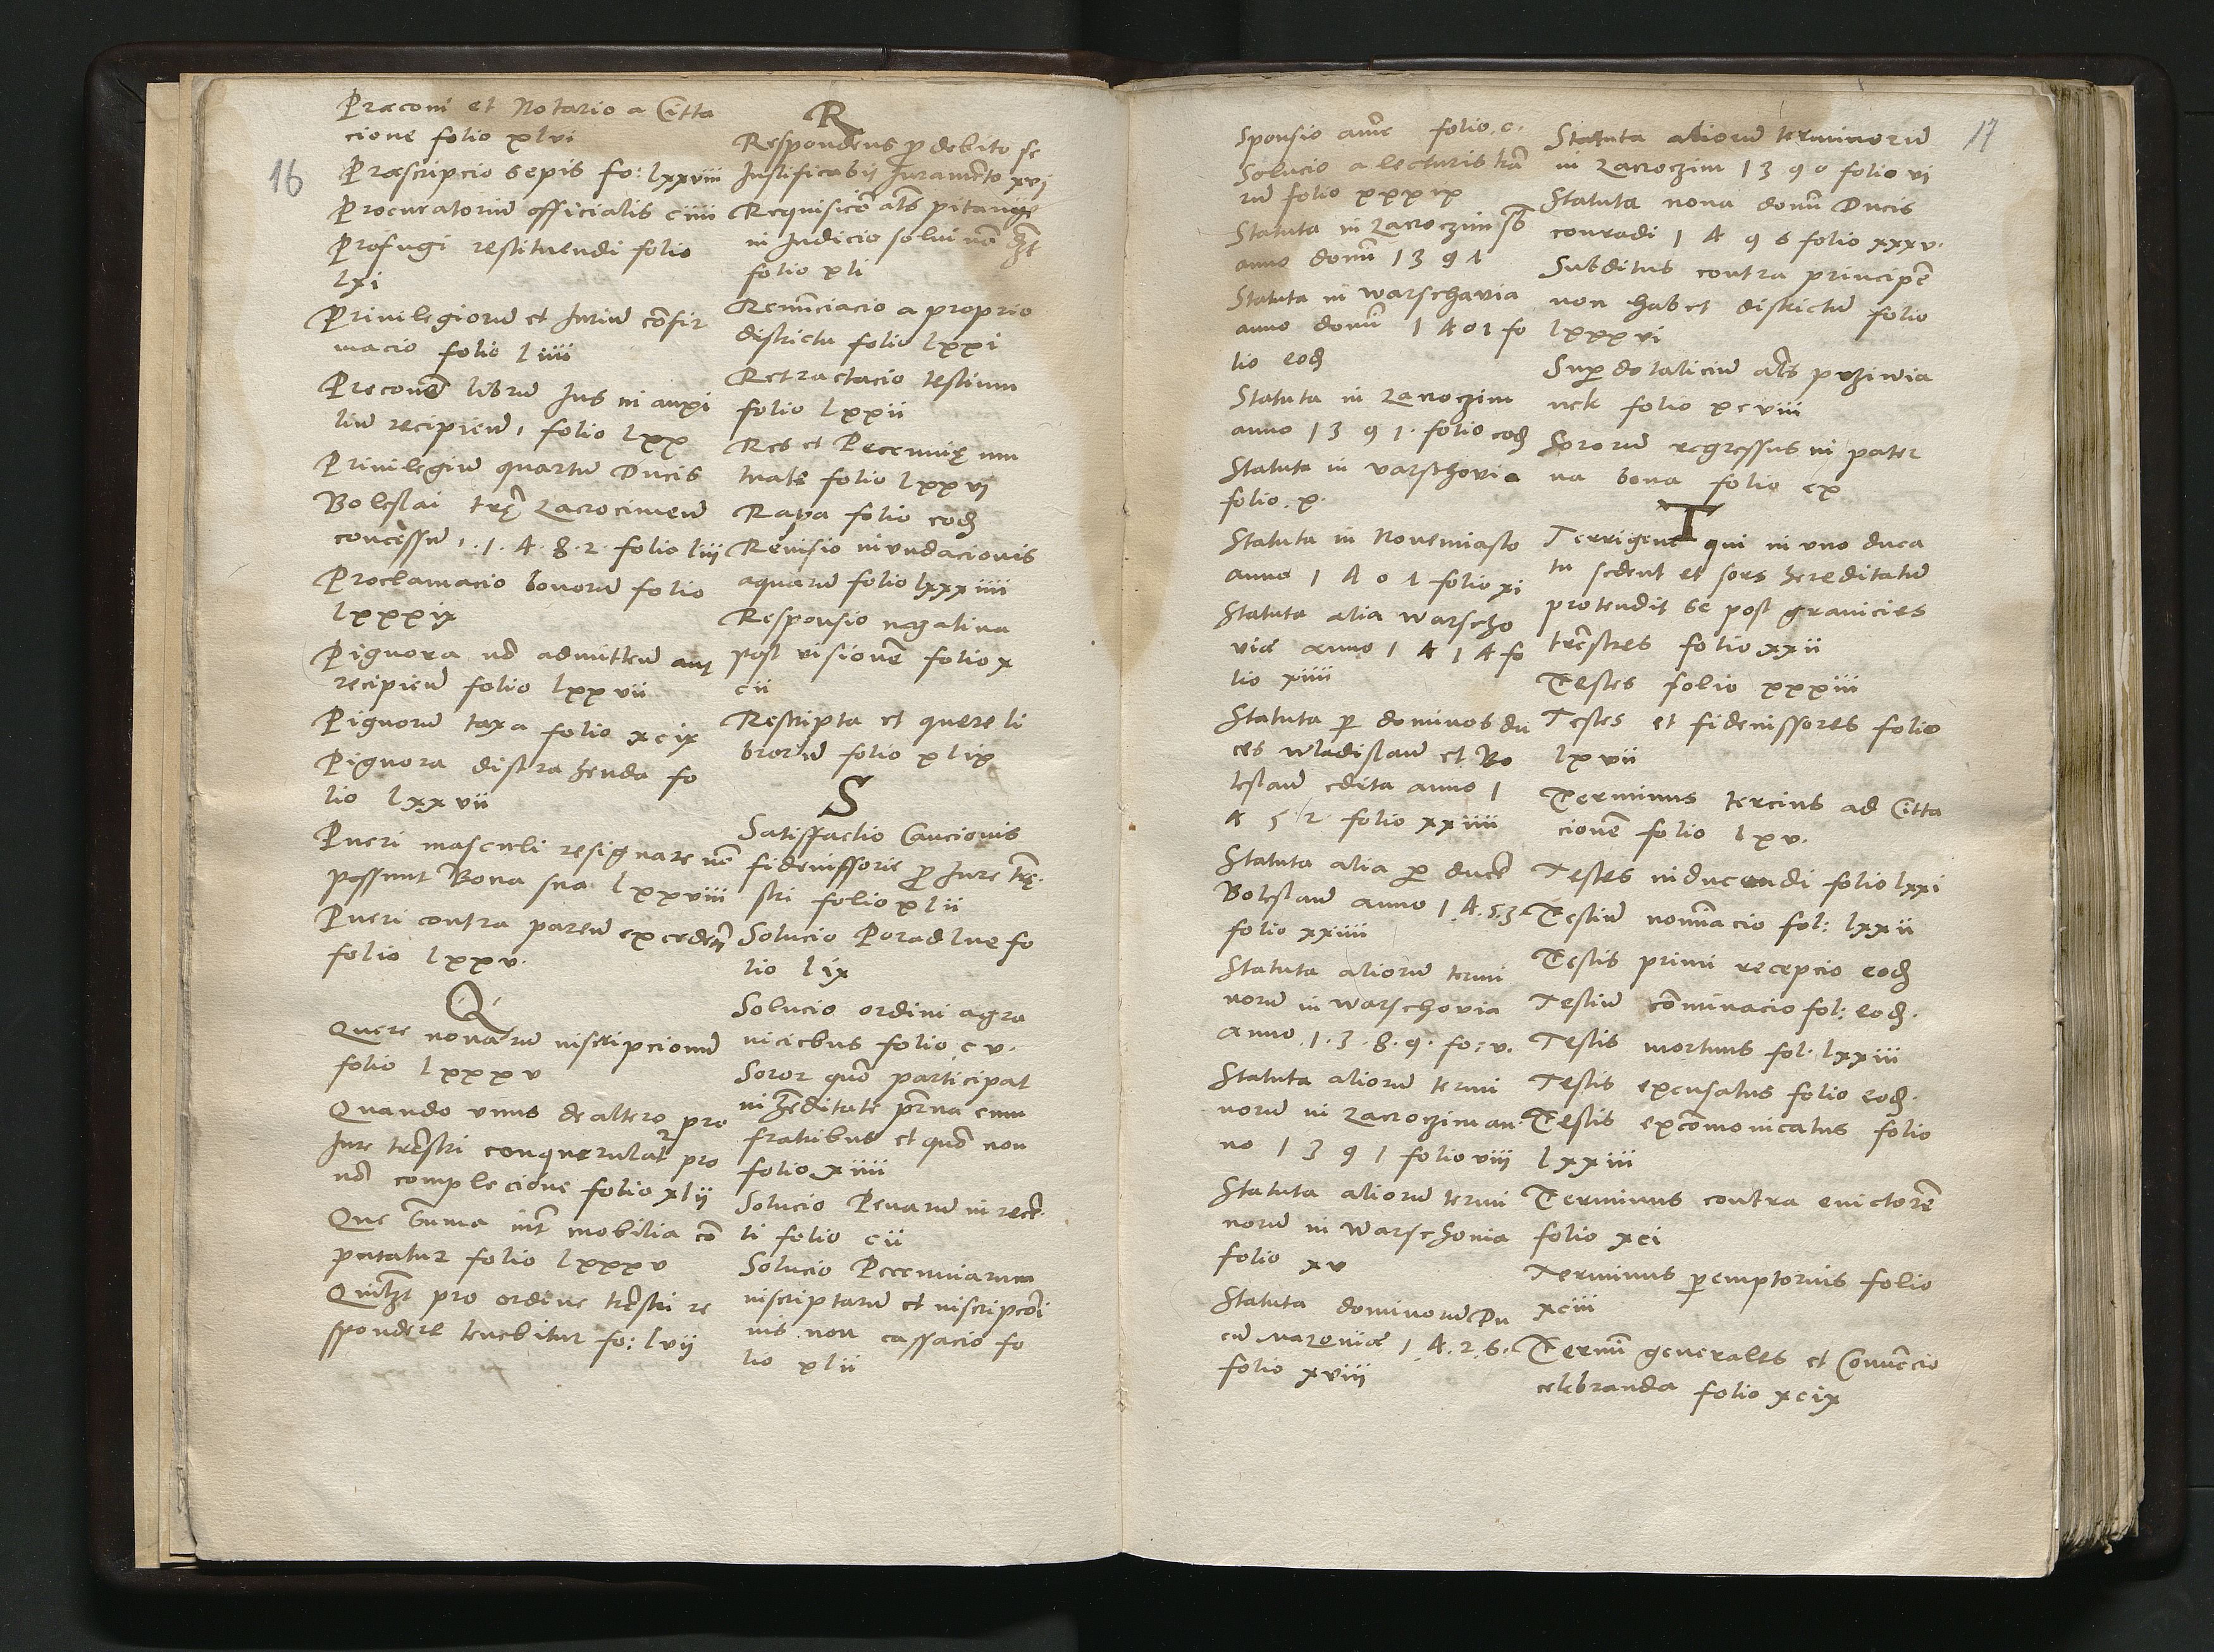 16
Præconi et Notario a Citta
cione folio xlvi
Præscripcio sepis fo: lxxviii
Procuratoriū officialis ciiii
Profugi restituendi folio
lxi
Priuilegiorū et Juriū cōfir
macio folio liiii
Preconē librū Jus in auxi
liū recipieñ, folio lxx
Priuilegiū quartū Ducis
Boleslai trę Zacrocimeñ
concessū 1.1.4.8.2. folio liii
Proclamacio bonorū folio
lxxxix
Pignora nō admitteñ aut
recipieñ folio lxxvii
Pignorū taxa folio xcix
Pignora distrahenda fo
lio lxxvii
Pueri masculi resignare nō
possunt Bona sua lxxviii
Pueri contra pareñ excedeñ
folio lxxv.
Q
Quere nouarū inscripcionū
folio lxxxv
Quando vnus de altero pro
Jure trēstri conquerulatr pro
nō complecione folio xlij
Que sūma int mobilia cō
putatur folio lxxxv
Quilȝt pro ordine trēstri re
spondere tenebitur fo: lvij
R
Respondens p debito se
Justificabit Juramēto xvj
Requisicō als pitanÿe
in Judicio solui nō
folio xli
Renūciacio a proprio
districtu folio lxxi
Retractacio testium
folio lxxii
Res et Pecunię mu
tuate folio lxxvj
Rapa folio eod
Reuisio inundacionis
aquarū folio lxxxiiii
Responsio negatiua
post visionē folio x
cii
Rescripta et quere li
brorū folio xlix
S
Satisfactio Caucionis
fideiussorie p Jure trę
stri folio xlii
Solucio Poradlne fo
lio lix
Solucio ordini agra
niciebus folio cv.
Soror quō participat
in hēditate prna cum
fratribus et quō non
folio xiiii
Solucio Penarū in recē
ti folio cii
Solucio Pecuniarum
inscriptarū et inscripcōi
nis non cassacio fo
lio xlii
17
Sponsio folio. c.
Solucio a lecturis
rū folio xxxix
Statuta in Zacroczim sb
anno domī 1391
Statuta in warschavia
anno domī 1401 fo
lio eod
Statuta in Zacroczim
anno 1391. folio eod
Statuta in varschovia
folio. x.
Statuta in Nouemiasto
anno 1401 folio xi
Statuta alia warscho
viæ anno 1414 fo
lio xiiii
Statuta p dominos du
ces wladislaū et Bo
leslaū edita anno 1
452. folio xxiiii
Statuta alia p ducē
Boleslaū anno 1.4.53.
folio xxiiii
Statuta aliorū termi
norū in warschovia
anno.1.3.8.9. fo: v.
Statuta aliorū termi
norū in Zacroczim an
no 1391 folio viii
Statuta aliorū termi
norū in warschouia
folio xv
Statuta dominorū Du
cū Mazouiæ 1.4.2.6.
folio xviii
Statuta aliorū terminorū
in Zacroczim 1390 folio vi
Statuta noua domī Ducis
conradi 1496 folio xxxv.
Subditus contra principē
non habet districtū folio
lxxxvi
Sup dotaliciū als pržiwia
nek folio xcviii
Sororū regressus in pater
na bona folio cx
T
Terrigene qui in vno duca
tu sedent et sors hereditatū
protendit se post granicies
trēstres folio xxii
Testes folio xxxiii
Testes et fideiussores folio
lxvii
Terminus tercius ad Citta
cionē folio lxv.
Testes inducendi folio lxxi
Testiū nomīacio fol: lxxii
Testis primi recepcio eod
Testiū cōminacio fol: eod.
Testis mortuus fol. lxxiii
Testis excusatus folio eod.
Testis excōmonicatus folio
lxxiii
Terminus contra euictorē
folio xci
Terminus pemptorius folio
xciii
Termī generales et Conuēcio
celebranda folio xcix